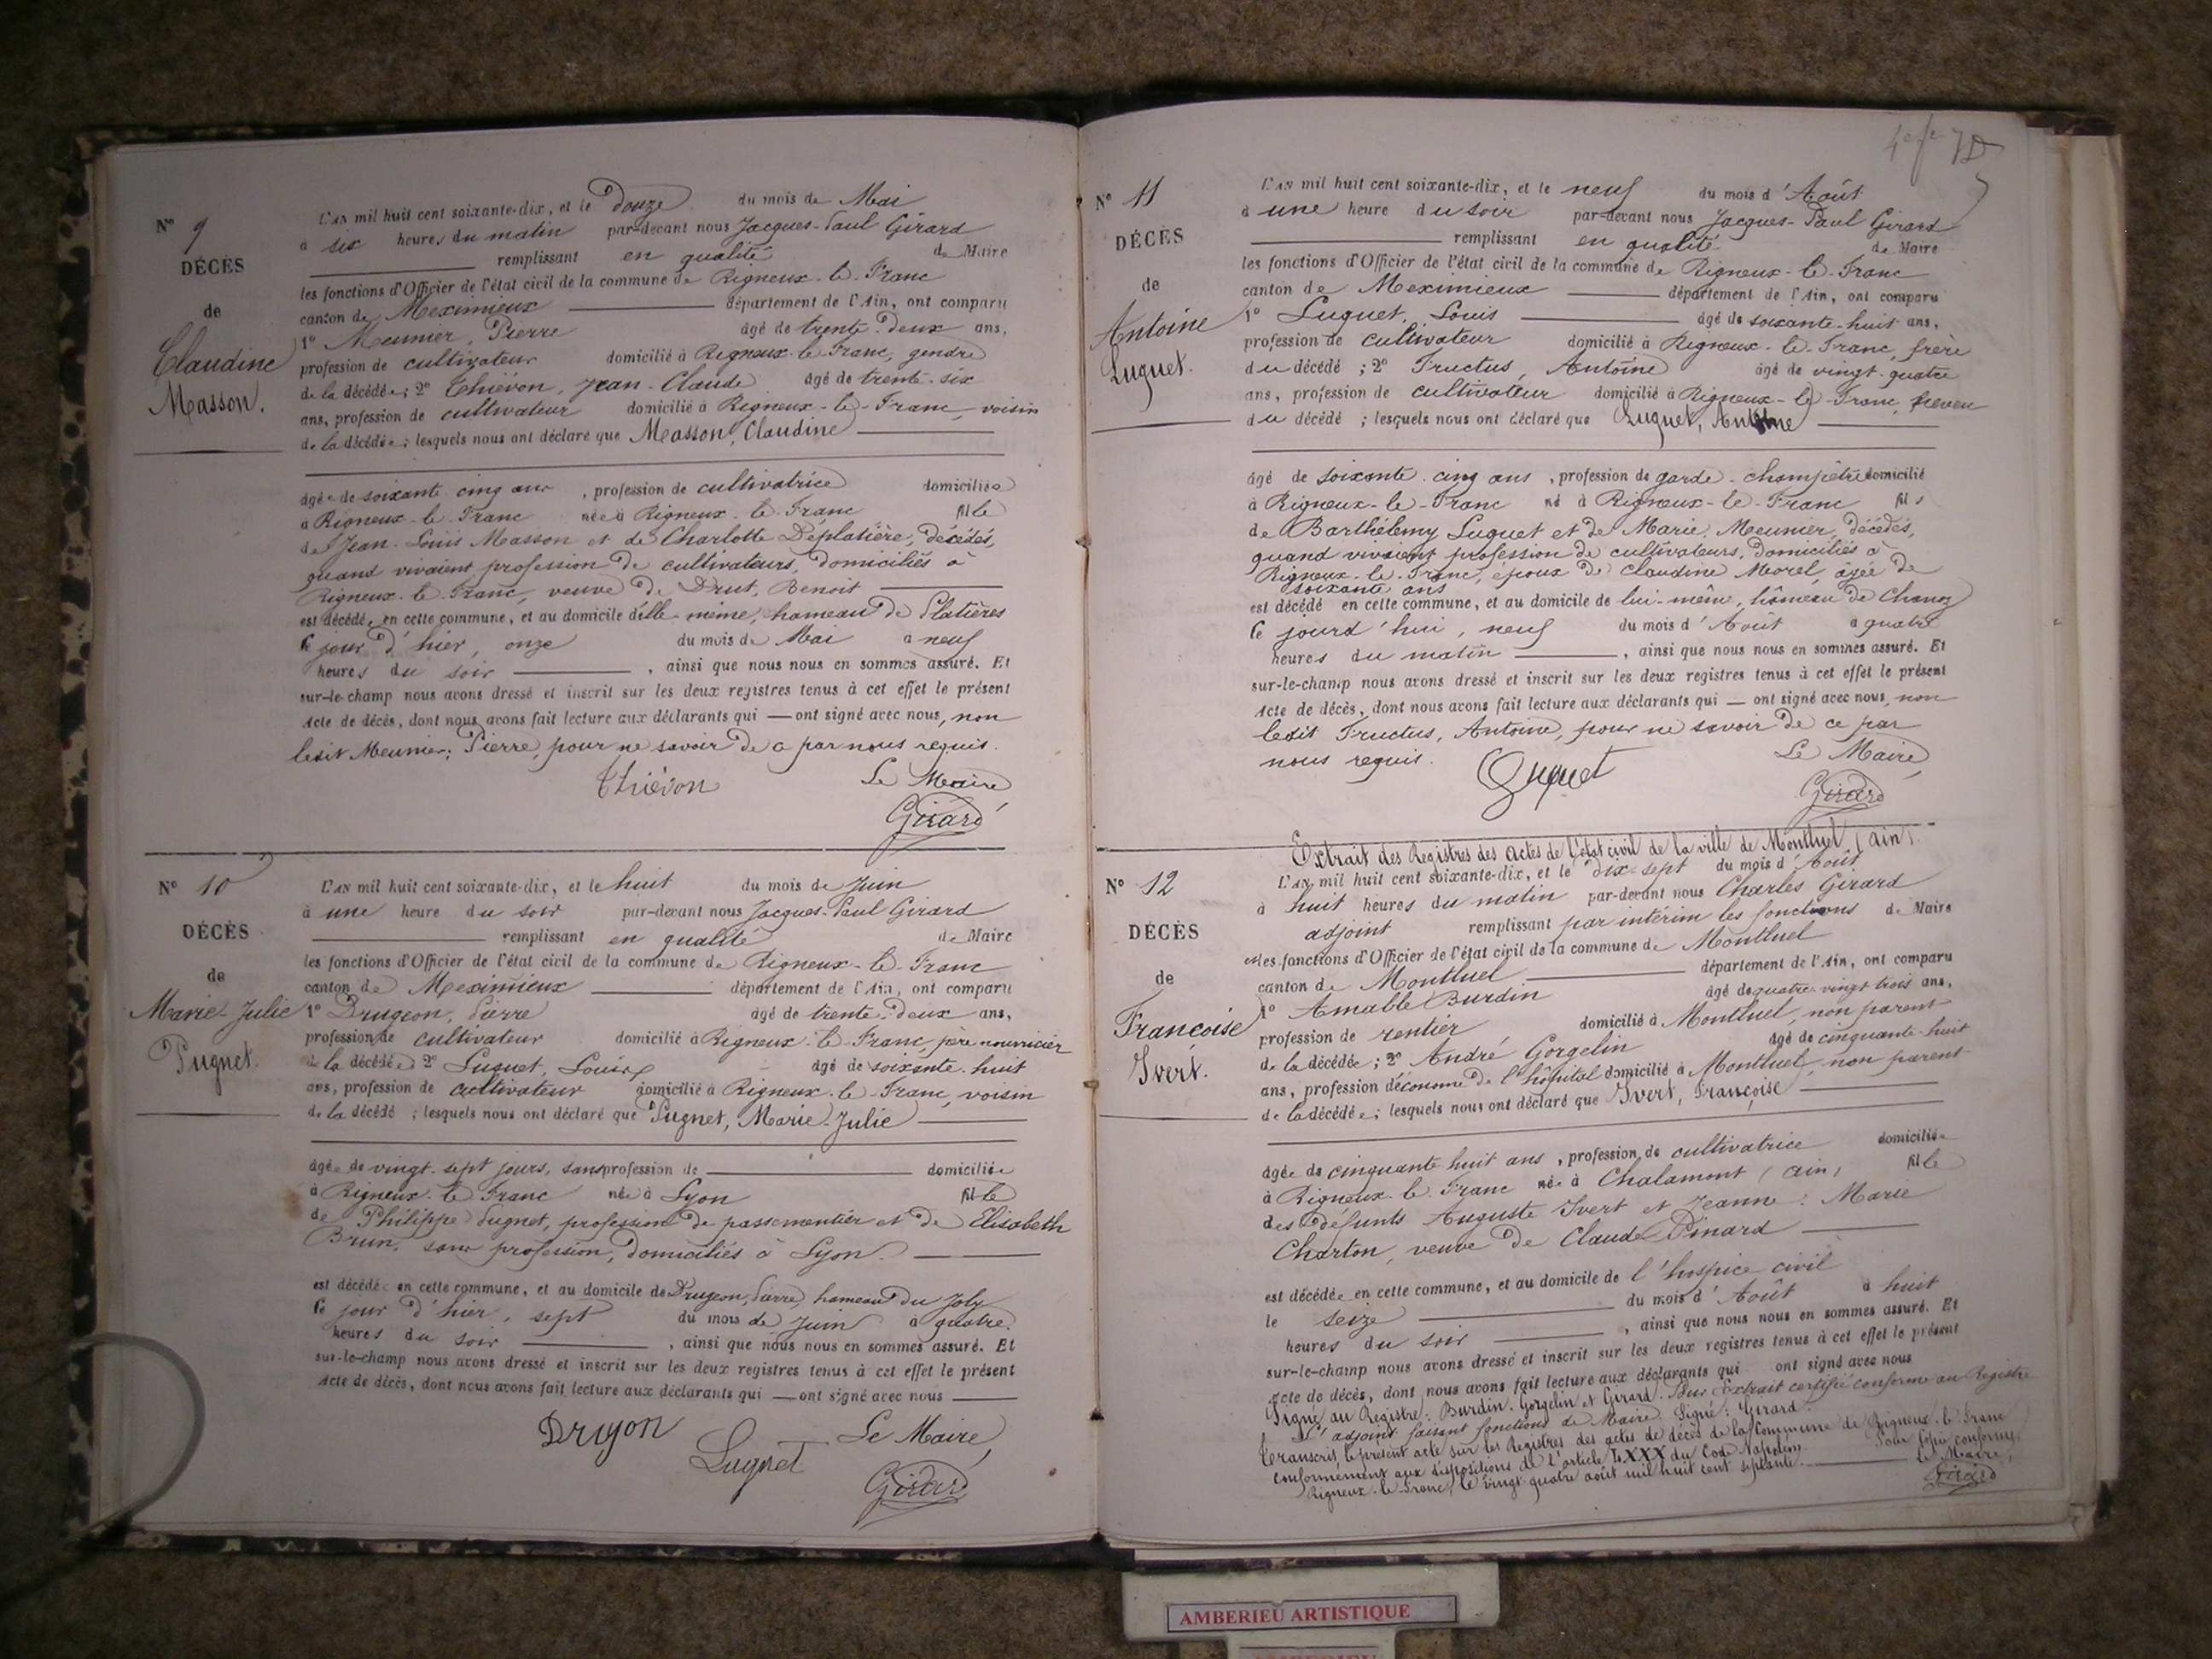 N° 9
DÉCÈS
de
Claudine
Masson.
L'AN mil huit cent soixante-dix, et le douze du mois de Mai
à six heures du matin par-devant nous Jacques-Paul Girard
remplissant en qualité de Maire
les fonctions d'Officier de l'état civil de la commune de Rigneux-le-Franc
canton de Meximieux département de l'Ain, ont comparu
1° Meunier, Pierre âgé de trente-deux ans,
profession de cultivateur domicilié à Rigneux-le-Franc, gendre
de la décédée; 2° Thiévon, Jean-Claude âgé de trente-six
ans, profession de cultivateur domicilié à Rigneux-le-Franc, voisin
de la décédée; lesquels nous ont déclaré que Masson, Claudine
âgée de soixante cinq ans, profession de cultivatrice domiciliée
à Rigneux-le-Franc née à Rigneux-le-Franc fille
de Jean-Louis Masson et de Charlotte Déplatière, décédés,
quand vivaient profession de cultivateurs, domiciliés à
Rigneux-le-Franc, veuve de Drut, Benoit
est décédée en cette commune, et au domicile d'elle-même, hameau de Platières
le jour d'hier, onze du mois de Mai à neuf
heures du soir, ainsi que nous nous en sommes assuré. Et
sur-le-champ nous avons dressé et inscrit sur les deux registres tenus à cet effet le présent
acte de décès, dont nous avons fait lecture aux déclarants qui — ont signé avec nous, non
ledit Meunier, Pierre, pour ne savoir de ce par nous requis.
Thiévon Le Maire
Girard
N° 10
DÉCÈS
de
Marie-Julie
Pugnet.
L'AN mil huit cent soixante-dix, et le huit du mois de Juin
à une heure du soir par-devant nous Jacques-Paul Girard
remplissant en qualité de Maire
les fonctions d'Officier de l'état civil de la commune de Rigneux-le-Franc
canton de Meximieux département de l'Ain, ont comparu
1° Drugeon, Pierre âgé de trente-deux ans,
profession de cultivateur domicilié à Rigneux-le-Franc, père nourricier
de la décédée 2° Luguet, Louis âgé de soixante-huit
ans, profession de cultivateur domicilié à Rigneux-le-Franc, voisin
de la décédé; lesquels nous ont déclaré que Pugnet, Marie-Julie
âgée de vingt-sept jours, sans profession de domiciliée
à Rigneux-le-Franc née à Lyon fille
de Philippe Pugnet, profession de passementier et de Elisabeth
Brun, sans profession, domiciliés à Lyon.
est décédée en cette commune, et au domicile de Drugeon, Pierre, hameau du Joly
le jour d'hier, sept du mois de Juin à quatre
heures du soir, ainsi que nous nous en sommes assuré. Et
sur-le-champ nous avons dressé et inscrit sur les deux registres tenus à cet effet le présent
acte de décès, dont nous avons fait lecture aux déclarants qui — ont signé avec nous
Drugon Luguet Le Maire,
Girard
N° 11
DÉCÈS
de
Antoine
Luguet.
L'AN mil huit cent soixante-dix, et le neuf du mois d'Août
à une heure du soir par-devant nous Jacques-Paul Girard
remplissant en qualité de Maire
les fonctions d'Officier de l'état civil de la commune de Rigneux-le-Franc
canton de Meximieux département de l'Ain, ont comparu
1° Luguet, Louis âgé de soixante-huit ans,
profession de cultivateur domicilié à Rigneux-le-Franc, frère
du décédé; 2° Fructus, Antoine âgé de vingt-quatre
ans, profession de cultivateur domicilié à Rigneux-le-Franc, neveu
du décédé; lesquels nous ont déclaré que Luguet, Antoine
âgé de soixante cinq ans, profession de garde-champêtre domicilié
à Rigneux-le-Franc né à Rigneux-le-Franc fils
de Barthélemy Luguet et de Marie Meunier, décédés,
quand vivaient profession de cultivateurs, domiciliés à
Rigneux-le-Franc, époux de Claudine Morel, âgée de
soixante ans
est décédé en cette commune, et au domicile de lui-même, hameau de Chanoz
le jourd'hui, neuf du mois d'Août à quatre
heures du matin, ainsi que nous nous en sommes assuré. Et
sur-le-champ nous avons dressé et inscrit sur les deux registres tenus à cet effet le présent
acte de décès, dont nous avons fait lecture aux déclarants qui — ont signé avec nous, non
ledit Fructus, Antoine, pour ne savoir de ce par
nous requis. Luguet Le Maire,
Girard
Extrait des Registres des actes de l'état civil de la ville de Montluel (Ain).
N° 12
DÉCÈS
de
Françoise
Yvert.
L'AN mil huit cent soixante-dix, et le dix-sept du mois d'Août
à huit heures du matin par-devant nous Charles Girard
adjoint remplissant par intérim les fonctions de Maire
et les fonctions d'Officier de l'état civil de la commune de Montluel
canton de Montluel département de l'Ain, ont comparu
1° Amable Burdin âgé de quatre-vingt trois ans,
profession de rentier domicilié à Montluel, non parent
de la décédée; 2° André Gorgelin âgé de cinquante-huit
ans, profession d'économe de l'hôpital domicilié à Montluel, non parent
de la décédée; lesquels nous ont déclaré que Yvert, Françoise
âgée de cinquante huit ans, profession de cultivatrice domiciliée
à Rigneux-le-Franc née à Chalamont (Ain) fille
des défunts Auguste Yvert et Jeanne-Marie
Charton, veuve de Claude Pinard
est décédée en cette commune, et au domicile de l'hospice civil
le seize du mois d'Août à huit
heures du soir, ainsi que nous nous en sommes assuré. Et
sur-le-champ nous avons dressé et inscrit sur les deux registres tenus à cet effet le présent
acte de décès, dont nous avons fait lecture aux déclarants qui ont signé avec nous
Signé au Registre: Burdin, Gorgelin et Girard. Pour Extrait certifié conforme au Registre
L'adjoint faisant fonctions de Maire. Signé: Girard.
Transcrit le présent acte sur les Registres des actes de décès de la Commune de Rigneux-le-Franc
conformément aux dispositions de l'article LXXX du Code Napoléon. Pour copie conforme
Rigneux-le-Franc, le vingt-quatre août mil huit cent septante. Le Maire,
Girard
AMBERIEU ARTISTIQUE
AMBERIEU